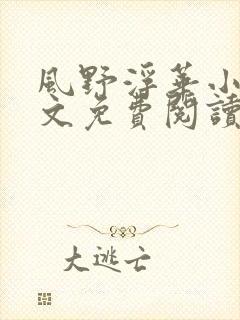 風野浮華小
文免費閱讀
大逃亡